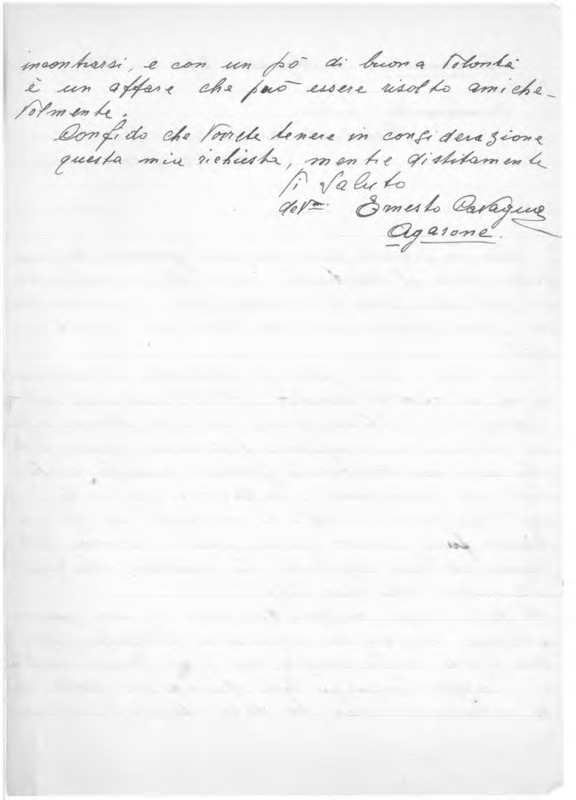 incontrarsi, e con un pò di buona volontà
è un affare che può essere risolto amiche-
volmente.
Confido che vorrete tenere in considerazione
questa mia richiesta, mentre distitamente
Vi saluto
dev.mo Ernesto Cavagna
Agarone.